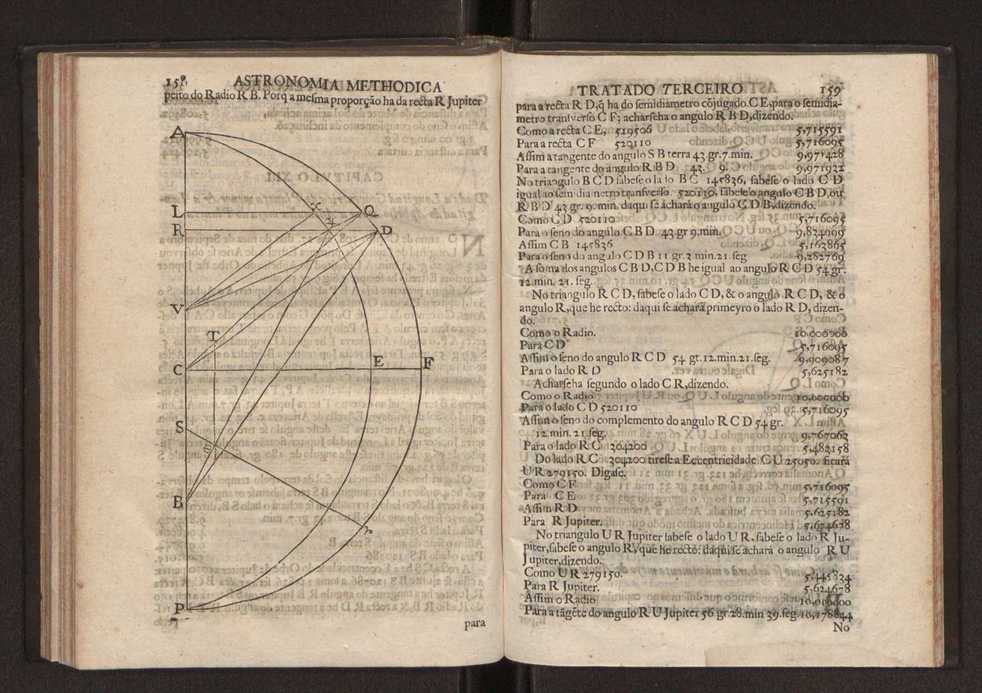 158. ASTRONOMIA METHODICA
peito do Radio R B. Porq̃ a mesma proporção ha da recta R Jupiter
A
L
Q
R
D
V
T
C
E
F
S
B
P
para
TRATADO TERCEIRO. 159
para a recta R D, q̃ ha do semidiametro cõjugado. C E, para o semidia-
metro transverso C F; acharseha o angulo R B D, dizendo.
Como a recta C E, 519506 5,715591
Para a recta C F 520110 5,716095
Assim a tangente do angulo S B terra 43 gr. 7. min. 9,971428
Para a tangente do angulo R B D 43. 9. 9,971932
No triangulo B C D sabese o lado B C 145836, sabese o lado C D
igual ao semidiametro transverso 520110, sabese o angulo C B D, ou
R B D 43. gr. 9. min. daqui se achará o augulo C D B, dizendo.
Como C D 520110 5,716095
Para o seno do angulo C B D 43. gr 9. min. 9,834999
Assim C B 145836 5,163865
Para o seno do angulo C D B 11 gr. 3 min. 21. seg 9,282769
A soma dos angulos C B D, C D B he igual ao angulo R C D 54. gr.
12. min. 21. seg.
No triangulo R C D, sabese o lado C D, & o angulo R C D, & o
angulo R, que he recto: daqui se achará primeyro o lado R D, dizen-
do.
Como o Radio. 10.000000
Para C D 5,716095
Assim o seno do angulo R C D 54 gr. 12. min. 21. seg. 9,909087
Para o lado R D 5,625182
Acharseha segundo o lado C R, dizendo.
Como o Radio 10.000000
Para o lado C D 520110 5,716095
Assim o seno do complemento do angulo R C D 54 gr.
12. min. 21 seg. 9,767063
Para o lado R C 304200 5,483158
Do lado R C 304200 tirese a Eccentricidade C U 25050. ficará
U R 279150. Digase.
Como C F 5,716095
Para C E 5,715591
Assim R D 5,625182
Para R Jupiter. 5,624678
No triangulo U R Jupiter sabese o lado U R, sabese o lado R Ju-
piter, sabese o angulo R, que he recto: daqui se achará o angulo R U
Jupiter, dizendo.
Como U R 279150. 5,445834
Para R Jupiter. 5,624678
Assim o Radio 10,000000
Para a tãgẽte do angulo R U Jupiter 56 gr. 28. min 39. seg. 10,178844
No